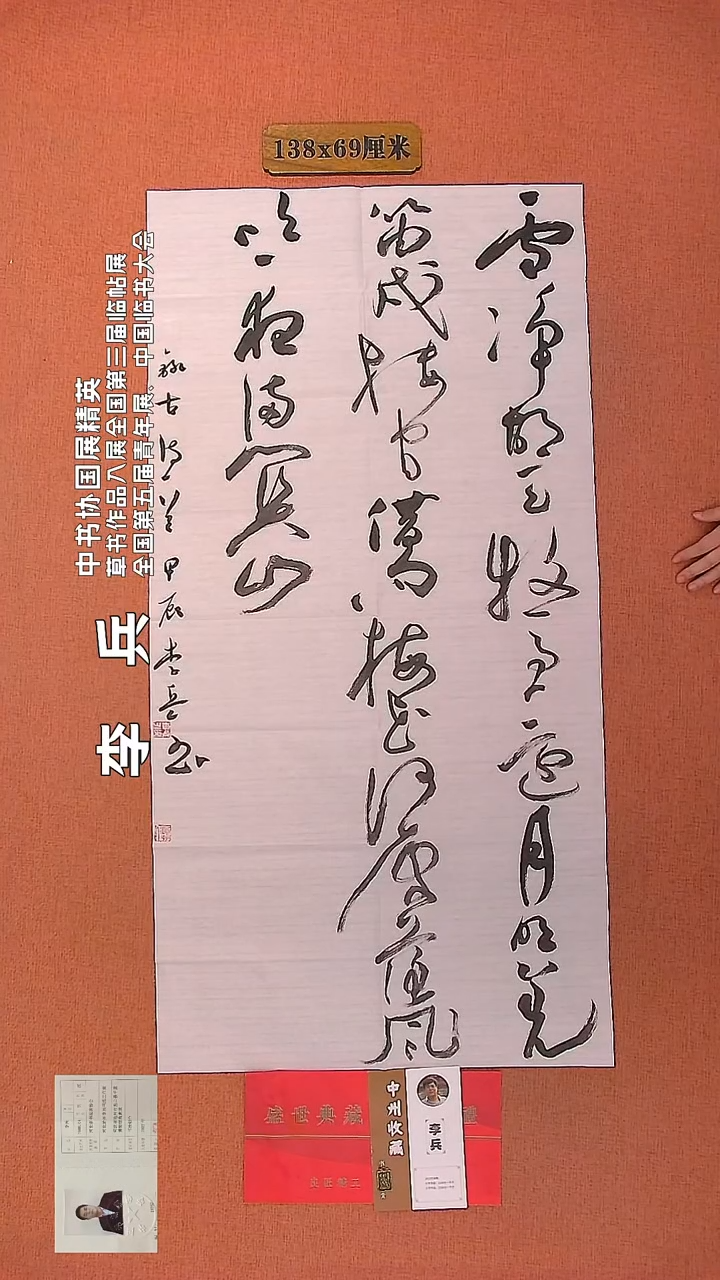 138x69厘米
雪净胡天牧马还月明羌
笛戍楼间借问梅花何处落风
吹一夜满关山
录古诗一首甲辰李兵书
中书协国展精英
草书作品入展全国第三届临帖展
全国第五届青年展。中国临书大会
李 兵
盛世典藏
中州收藏
李兵